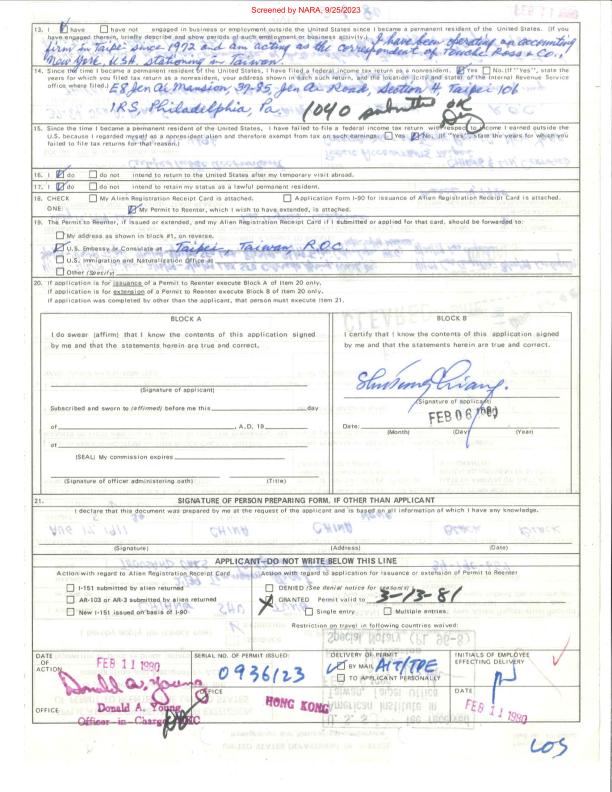 Screened by NARA, 9/25/2023
13. I have have not engaged in business or employment outside the United States since I became a permanent resident of the United States. (If you
have engaged therein, briefly describe and show periods of such employment or business activity.) I have been operating an accounting
firm in Taipei since 1972 and am acting as the correspondent of Touche Ross & Co.,
New York, U.S.A. stationing in Taiwan.
14. Since the time I became a permanent resident of the United States, I have filed a federal income tax return as a nonresident. Yes No. (If "Yes", state the
years for which you filed tax return as a nonresident, your address shown in each such return, and the location (city and state) of the Internal Revenue Service
office where filed.) E8 Jen Ai Mansion, 37-85, Jen Ai Road, Section 4, Taipei 106
IRS, Philadelphia, Pa. 1040 submitted OK
15. Since the time I became a permanent resident of the United States, I have failed to file a federal income tax return with respect to income I earned outside the
U.S. because I regarded myself as a nonresident alien and therefore exempt from tax on such earnings. Yes No. (If "Yes", state the years for which you
failed to file tax returns for that reason.)
16. I do do not intend to return to the United States after my temporary visit abroad.
17. I do do not intend to retain my status as a lawful permanent resident.
18. CHECK My Alien Registration Receipt Card is attached. Application Form I-90 for issuance of Alien Registration Receipt Card is attached.
ONE: My Permit to Reenter, which I wish to have extended, is attached.
19. The Permit to Reenter, if issued or extended, and my Alien Registration Receipt Card if I submitted or applied for that card, should be forwarded to:
My address as shown in block #1, on reverse.
U.S. Embassy or Consulate at Taipei, Taiwan, R.O.C.
U.S. Immigration and Naturalization Office at
Other (Specify)
20. If application is for issuance of a Permit to Reenter execute Block A of Item 20 only.
If application is for extension of a Permit to Reenter execute Block B of Item 20 only.
If application was completed by other than the applicant, that person must execute Item 21.
BLOCK A
I do swear (affirm) that I know the contents of this application signed
by me and that the statements herein are true and correct.
(Signature of applicant)
Subscribed and sworn to (affirmed) before me this day
of , A.D. 19
at
(SEAL) My commission expires
(Signature of officer administering oath) (Title)
BLOCK B
I certify that I know the contents of this application signed
by me and that the statements herein are true and correct.
(Signature of applicant)
FEB 06 1980
Date:
(Month) (Day) (Year)
21. SIGNATURE OF PERSON PREPARING FORM, IF OTHER THAN APPLICANT
I declare that this document was prepared by me at the request of the applicant and is based on all information of which I have any knowledge.
(Signature) (Address) (Date)
APPLICANT—DO NOT WRITE BELOW THIS LINE
Action with regard to Alien Registration Receipt Card
I-151 submitted by alien returned
AR-103 or AR-3 submitted by alien returned
New I-151 issued on basis of I-90
Action with regard to application for issuance or extension of Permit to Reenter
DENIED (See denial notice for reasons)
GRANTED Permit valid to 3-13-81
Single entry Multiple entries
Restriction on travel in following countries waived:
DATE OF ACTION FEB 11 1980
SERIAL NO. OF PERMIT ISSUED: 0936123
DELIVERY OF PERMIT
BY MAIL AIT/TPE
TO APPLICANT PERSONALLY
INITIALS OF EMPLOYEE
EFFECTING DELIVERY
DATE
FEB 11 1980
Donald A. Young
OFFICE Donald A. Young
Officer-in-Charge
OFFICE HONG KONG
LOS